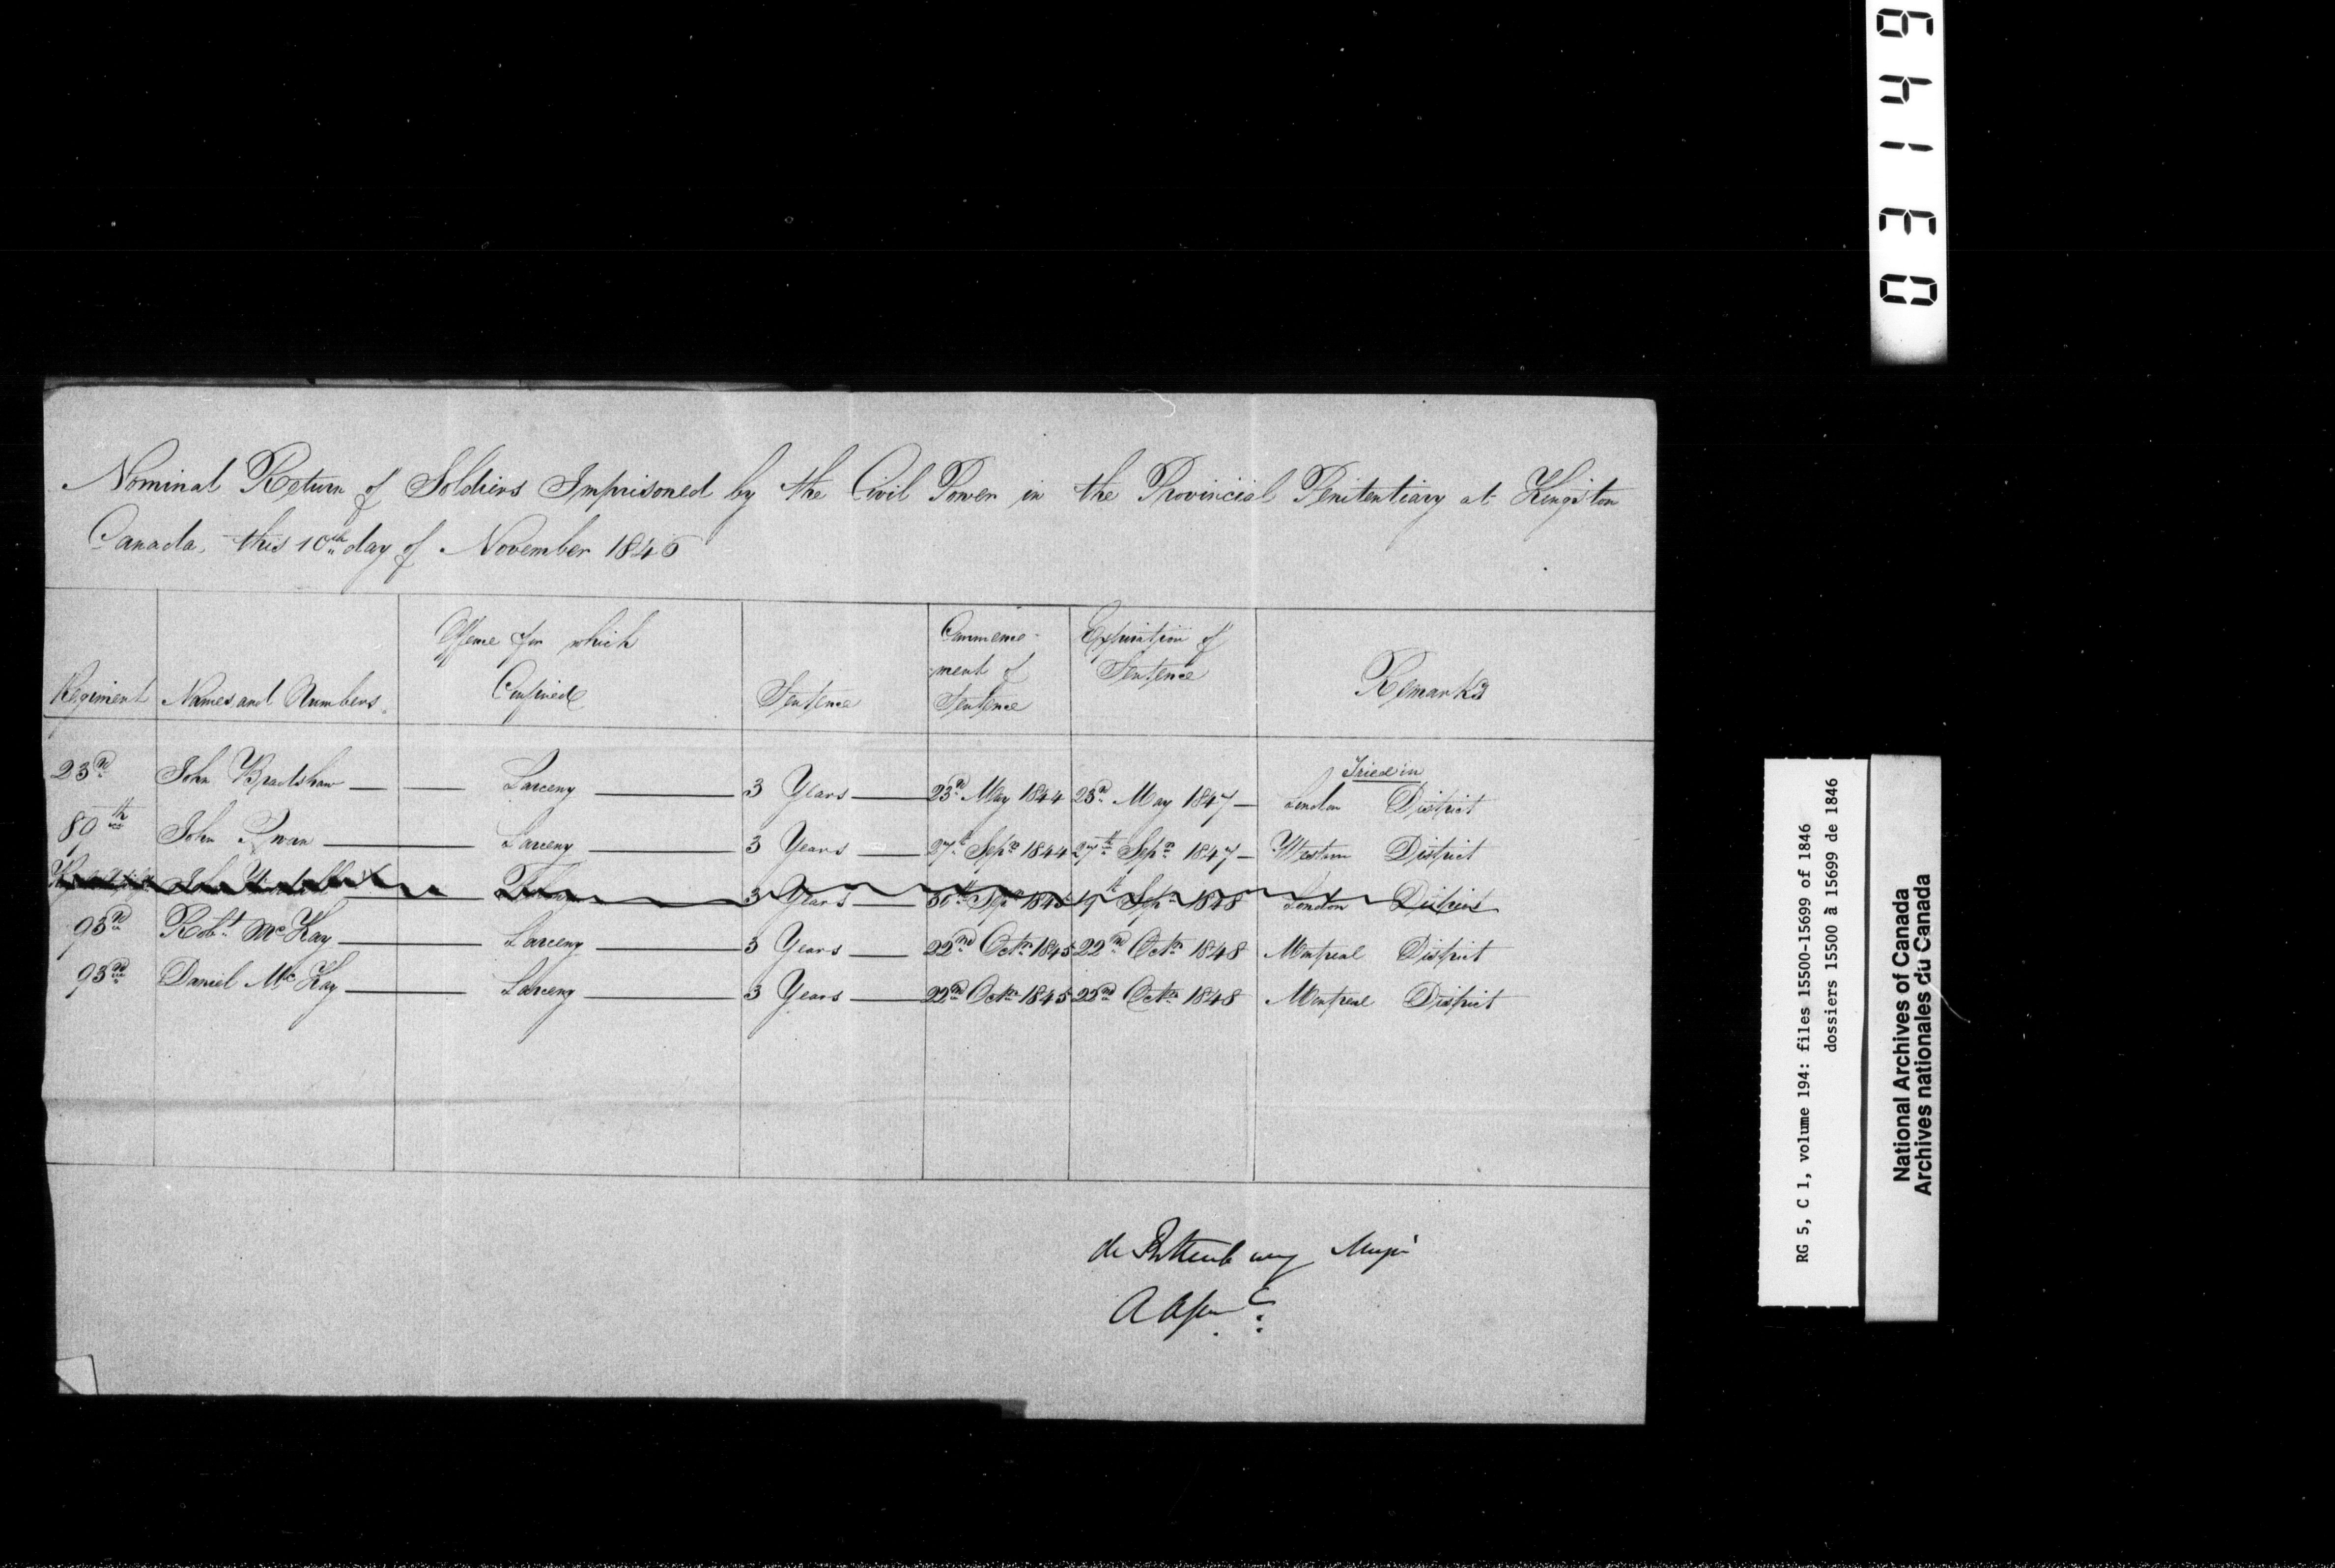 Nominal Return of Soldiers Imprisoned by the Civil Power in the Provincial Penitentiary at Kingston
Canada, this 10th day of November 1846
Regiment Names and Numbers Offence for which Confined Sentence Commence-ment of Sentence Expiration of Sentence Remarks
Tried in
23rd John Bradshaw Larceny 3 Years 23rd May 1844 23rd May 1847 London District
80th John Larceny 3 Years 27th Sepr 1844 27th Sepr 1847 Western District
John 3 Years Sepr 1845 Sepr 1848 London District
93rd Robt McKay Larceny 3 Years 22nd Octr 1845 22nd Octr 1848 Montreal District
93rd Daniel McKay Larceny 3 Years 22nd Octr 1845 22nd Octr 1848 Montreal District
de Rottenburg Major
03149
RG 5, C 1, volume 194: files 15500-15699 of 1846
dossiers 15500 à 15699 de 1846
National Archives of Canada
Archives nationales du Canada